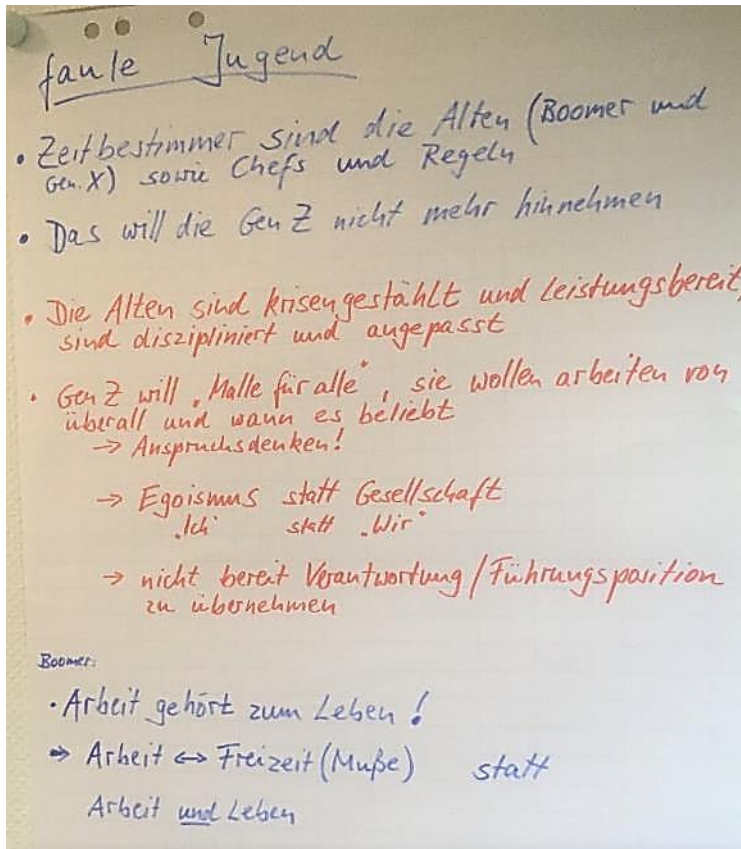 faule Jugend
• Zeitbestimmer sind die Alten (Boomer und
Gen. X) sowie Chefs und Regeln
• Das will die Gen Z nicht mehr hinnehmen
• Die Alten sind krisengestählt und leistungsbereit,
sind diszipliniert und angepasst
• Gen Z will „Malle für alle“, sie wollen arbeiten von
überall und wann es beliebt
→ Anspruchsdenken!
→ Egoismus statt Gesellschaft
„Ich“ statt „Wir“
→ nicht bereit Verantwortung/Führungsposition
zu übernehmen
Boomer:
• Arbeit gehört zum Leben!
⇒ Arbeit ↔ Freizeit (Muße) statt
Arbeit und Leben